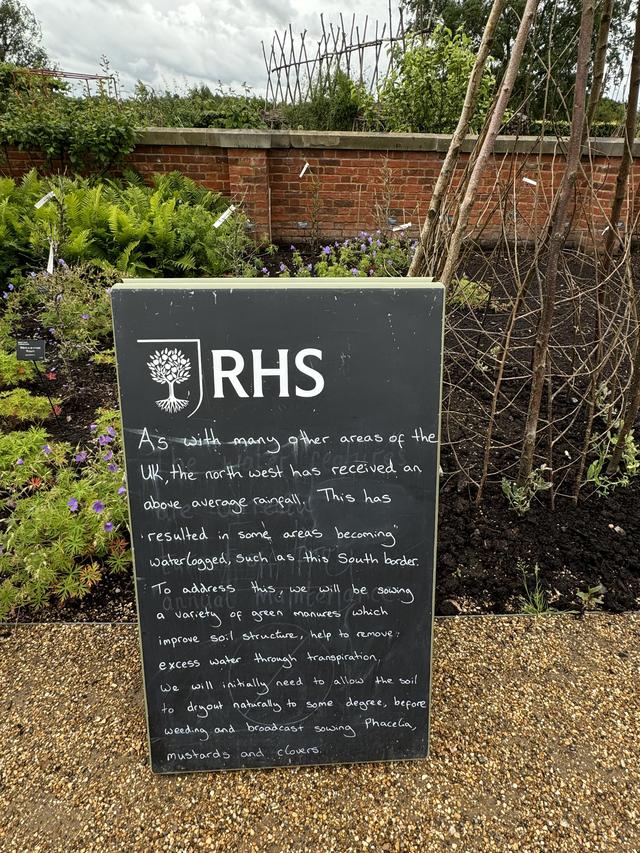 RHS
As with many other areas of the
UK, the north west has received an
above average rainfall. This has
resulted in some areas becoming
waterlogged, such as this South border.
To address this, we will be sowing
a variety of green manures which
improve soil structure, help to remove
excess water through transpiration,
we will initially need to allow the soil
to dryout naturally to some degree, before
weeding and broadcast sowing Phacelia,
mustards and clovers.